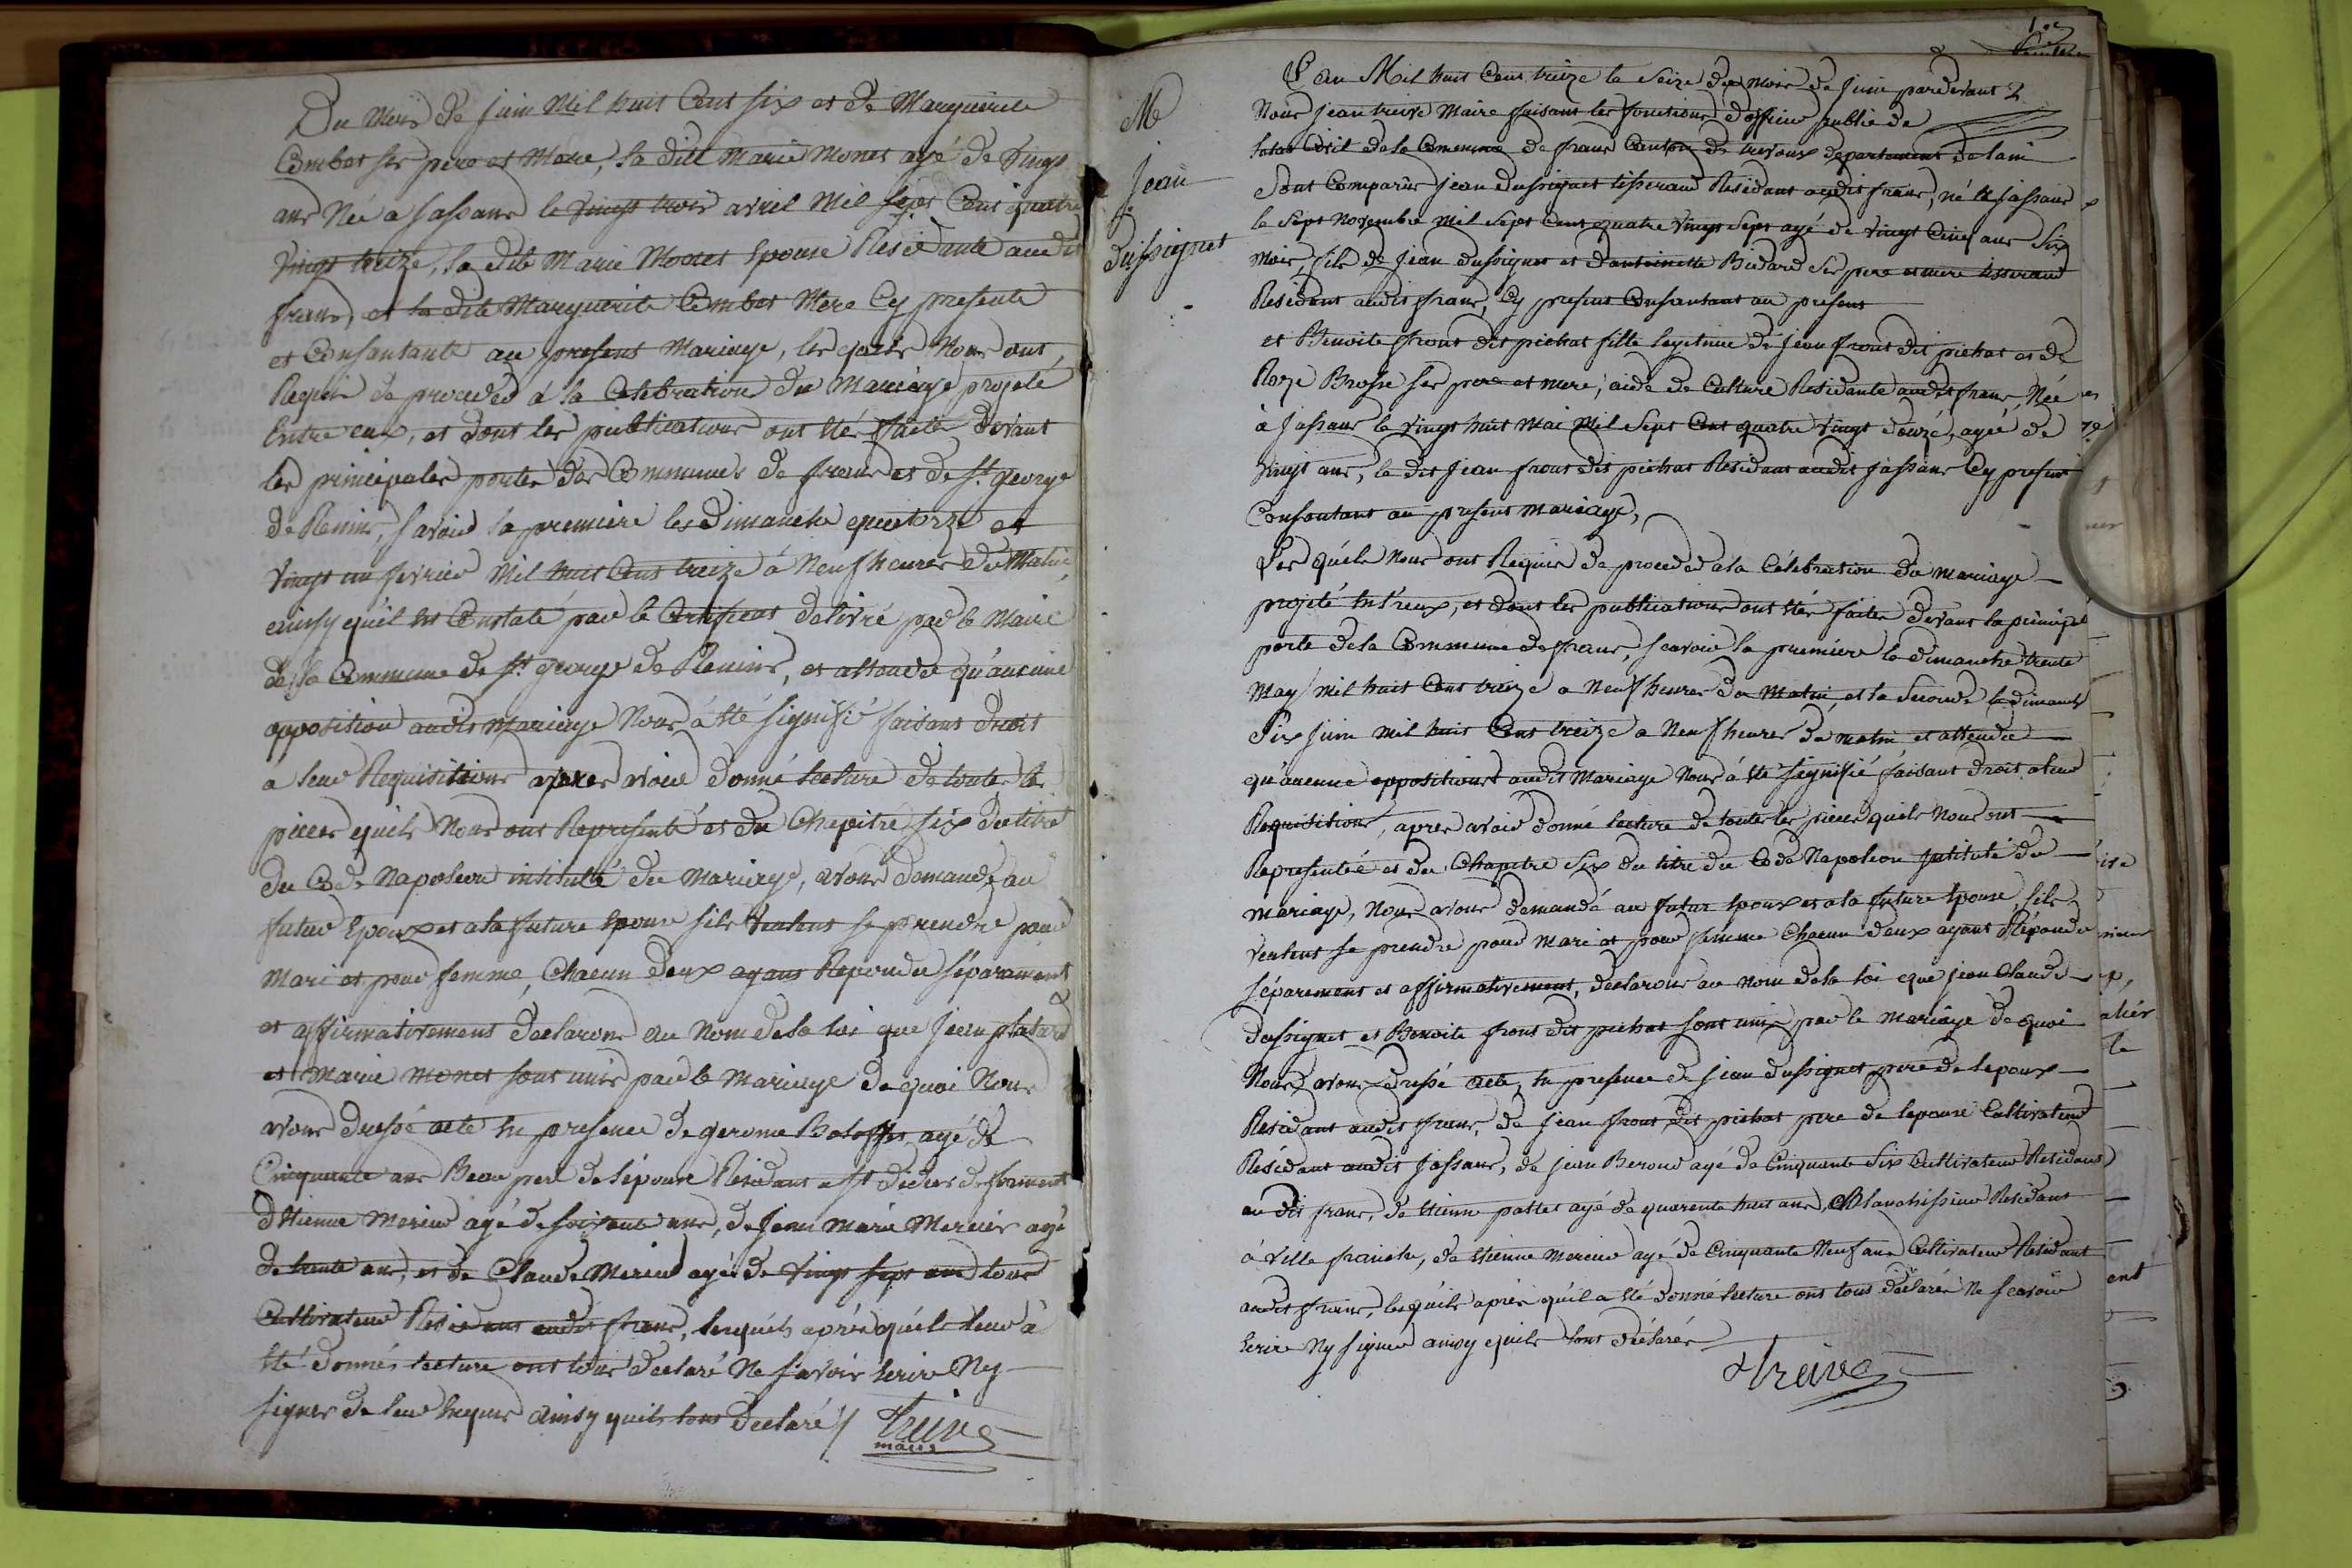 Du Mois de juin Mil huit Cent six et de Marguerite
Combet ses pere et Mere, la dite Marie Monet agé de Vingt
ans Née a Jassans le Vingt trois avril Mil Sept Cent quatre
Vingt treize, la dite Marie Monet Epouse Residante audit
frans, et la dite Marguerite Combet Mere Cy presente
et Consantante au present Mariage, les quels Nous ont
Requis de proceder à la Celebration du Mariage projeté
Entre eux, et dont les publications ont été faite devant
les principales portes des Communes de frans et de St. george
de Renins, Savoir la premiere les Dimanche quatorze et
Vingt un fevrier Mil huit Cens treize à Neuf heures du Matin,
ainsy quil est Constaté par le Certificat delivré par le Maire
de la Commune de St. george de Renins, et attendu qu'aucune
opposition audit Mariage Nous à été signifié faisant Droit
à leur Requisitions apres avoir donné lecture de toute les
pieces quils Nous ont Representé et du Chapitre six du titre
du Code Napoleon intitulé du Mariage, avons demandé au
futur Epoux et a la future Epouse sils Veulent se prendre pour
Mari et pour femme, Chacun deux ayans Repondu séparament
et affirmativement declarons au Nom de la loi que Jean platard
et Marie Monet sont unis par le Mariage de quoi Nous
avons dressé acte En presence de gerome agé de
Cinquante ans Beau pere de l'épouse Residant a St didier de formant
dEtienne Merieu agé de soixante ans, de Jean Marie Mercier agé
de trente ans, et de Claude Merieu agé de Vingt sept ans tous
Cultivateur Residant audit frans, lesquels après quil leur à
été donnés lecture ont tous declaré Ne savoir Ecrire Ny
signer de leur Enquis Ainsy quils tous Declaré / Treive
maire
L'an Mil huit Cens treize le Seize du mois de Juin pardevant
Nous Jean treive Maire faisant les fonctions d'officier public de
letat Civil de la Commune de frans Canton de trevoux departement de lain
Sont Comparus Jean dussignet tisserand Residant audit frans, né a Jassans
le Sept Novembre Mil Sept Cens quatre Vingt Sept agé de Vingt Cinq ans Six
Mois, fils de Jean dussignet et dantoinette Bidard Ses pere et mere tisserand
Residant audit frans, Cy present Consantant au present
et Benoite front dit pichat fille legitime de Jean front dit pichat et de
Roze Brosse ses pere et mere, aide de Culture Residante audit frans, Née
à Jassans le Vingt huit Mai Mil Sept Cent quatre Vingt douze, agée de
Vingt ans, le dit Jean front dit pichat Residant audit Jassans Cy present
Consantant au present mariage,
Les quels Nous ont Requis de proceder à la Célébration du mariage
projeté Entreux, et dont les publications ont été faites devant la principal
porte de la Commune de frans, scavoir la premiére le dimanche trente
May mil huit Cens treize a Neuf heures du matin, et la Seconde le dimanche
Six juin mil huit Cens treize a Neuf heures du matin, et attendu
qu'aucune oppositions audit Mariage Nous à été signifié faisant droit a leur
Requisitions, apres avoir donné lecture de toute les pieces quils Nous ont
Representée et du Chapitre Six du titre du Code Napoleon Intitulé du
mariage, Nous avons demandé au futur Epoux et a la future Epouse, sils
veulent se prendre pour Mari et pour femme Chacun deux ayant Répondu
séparement et affirmativement, declarons au nom de la loi que jean Claude
dussignet et Benoite front dit pichat sont unis par le Mariage de quoi
Nous avons dressé acte, En presence de Jean dussignet pere de lepoux
Residant audit frans, de Jean front dit pichat pere de lepouse Cultivateur
Résidant audit Jassans, de Jean Beroud agé de Cinquante Six Cultivateur Residant
au dit frans, de Etienne agé de quarente huit ans, Blanchisseur Residant
à Ville franche, de Etienne Merieu agé de Cinquante Neuf ans Cultivateur Residant
audit frans, lesquels après quil a été donné lecture ont tous déclarés Ne scavoir
Ecrire Ny signer ainsy quils lont déclarés
Treive
M
Jean
dussignet